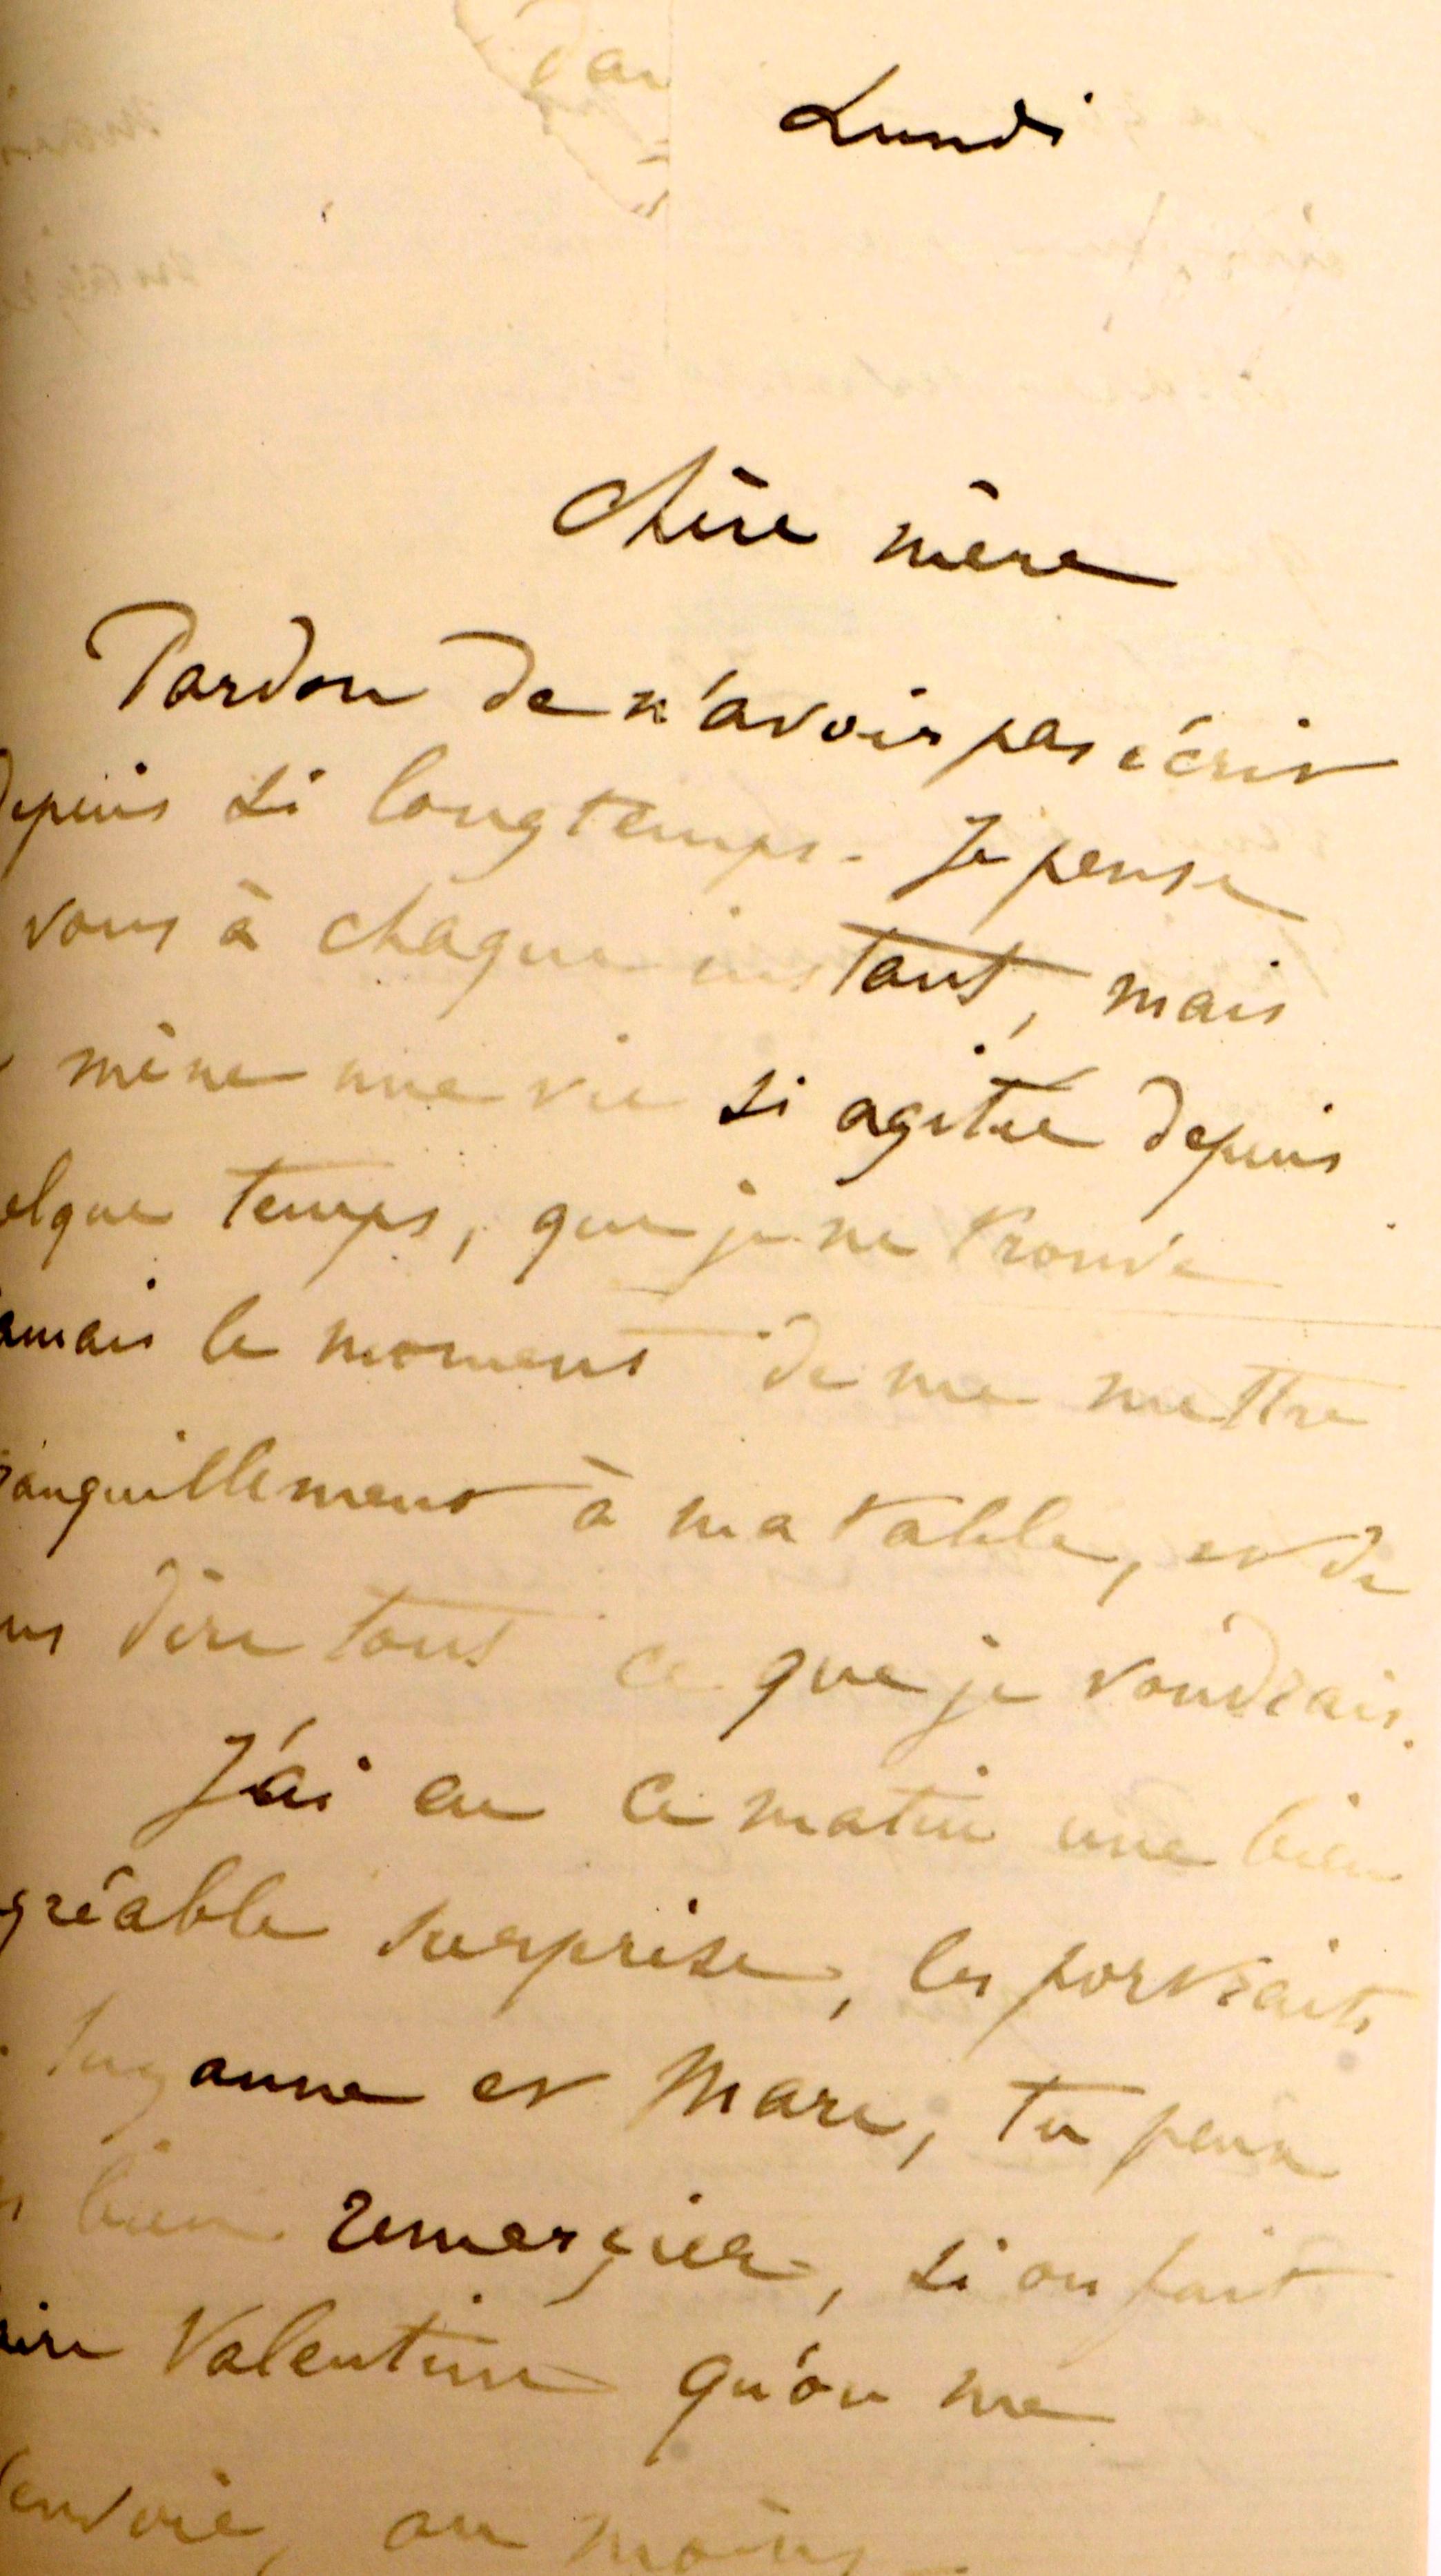 Lundi
Chère mère
Pardon de n'avoir pas écrit
depuis si longtemps. Je pense
vous à chaque instant, mais
mène une vie si agitée depuis
elque temps, que je ne trouve
jamais le moment de me mettre
ranquillement à ma table, et de
us dire tout ce que je voudrais.
J'ai eu ce matin une bien
gréable surprise, les portraits
Suzanne et Marc, tu peux
bien remercier, si on fait
ire Valentine qu'on me
l'envoie, au moins